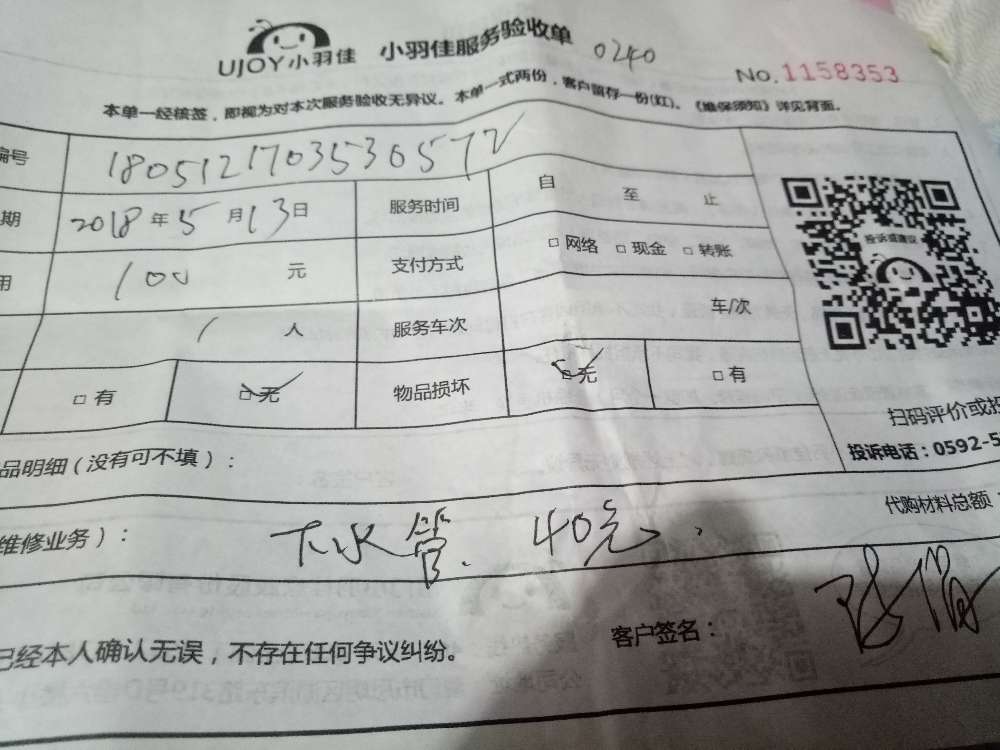 UJOY小羽佳 小羽佳服务验收单 0240
No.1158353
本单一经核签，即视为对本次服务验收无异议。本单一式两份，客户留存一份(红)。《维保须知》详见背面。
编号 180512170353057
期 2018年5月13日 服务时间 自 至 止
用 100 元 支付方式 □网络 □现金 □转账
1 人 服务车次 车/次
□有 □无 物品损坏 □无 □有
投诉或建议
扫码评价或投
投诉电话：0592-5
品明细（没有可不填）：
代购材料总额：
维修业务）： 下水管 40元
已经本人确认无误，不存在任何争议纠纷。 客户签名：